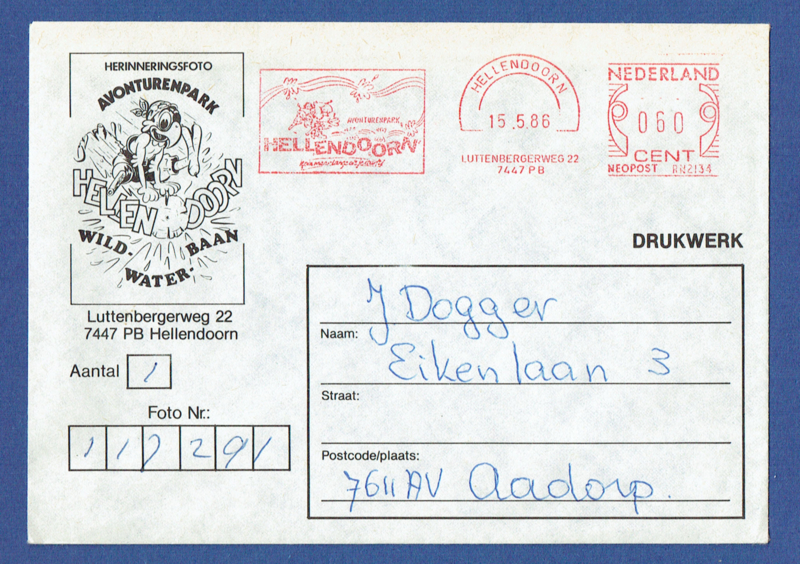 HERINNERINGSFOTO
AVONTURENPARK
HELLENDOORN
WILD-
WATER-
BAAN
Luttenbergerweg 22
7447 PB Hellendoorn
Aantal 1
Foto Nr.:
AVONTURENPARK
HELLENDOORN
HELLENDOORN
15.5.86
LUTTENBERGERWEG 22
7447 PB
NEDERLAND
060
CENT
NEOPOST RN2134
DRUKWERK
J Dogger
Naam:
Eikenlaan 3
Straat:
Postcode/plaats:
7611 AV Aadorp.